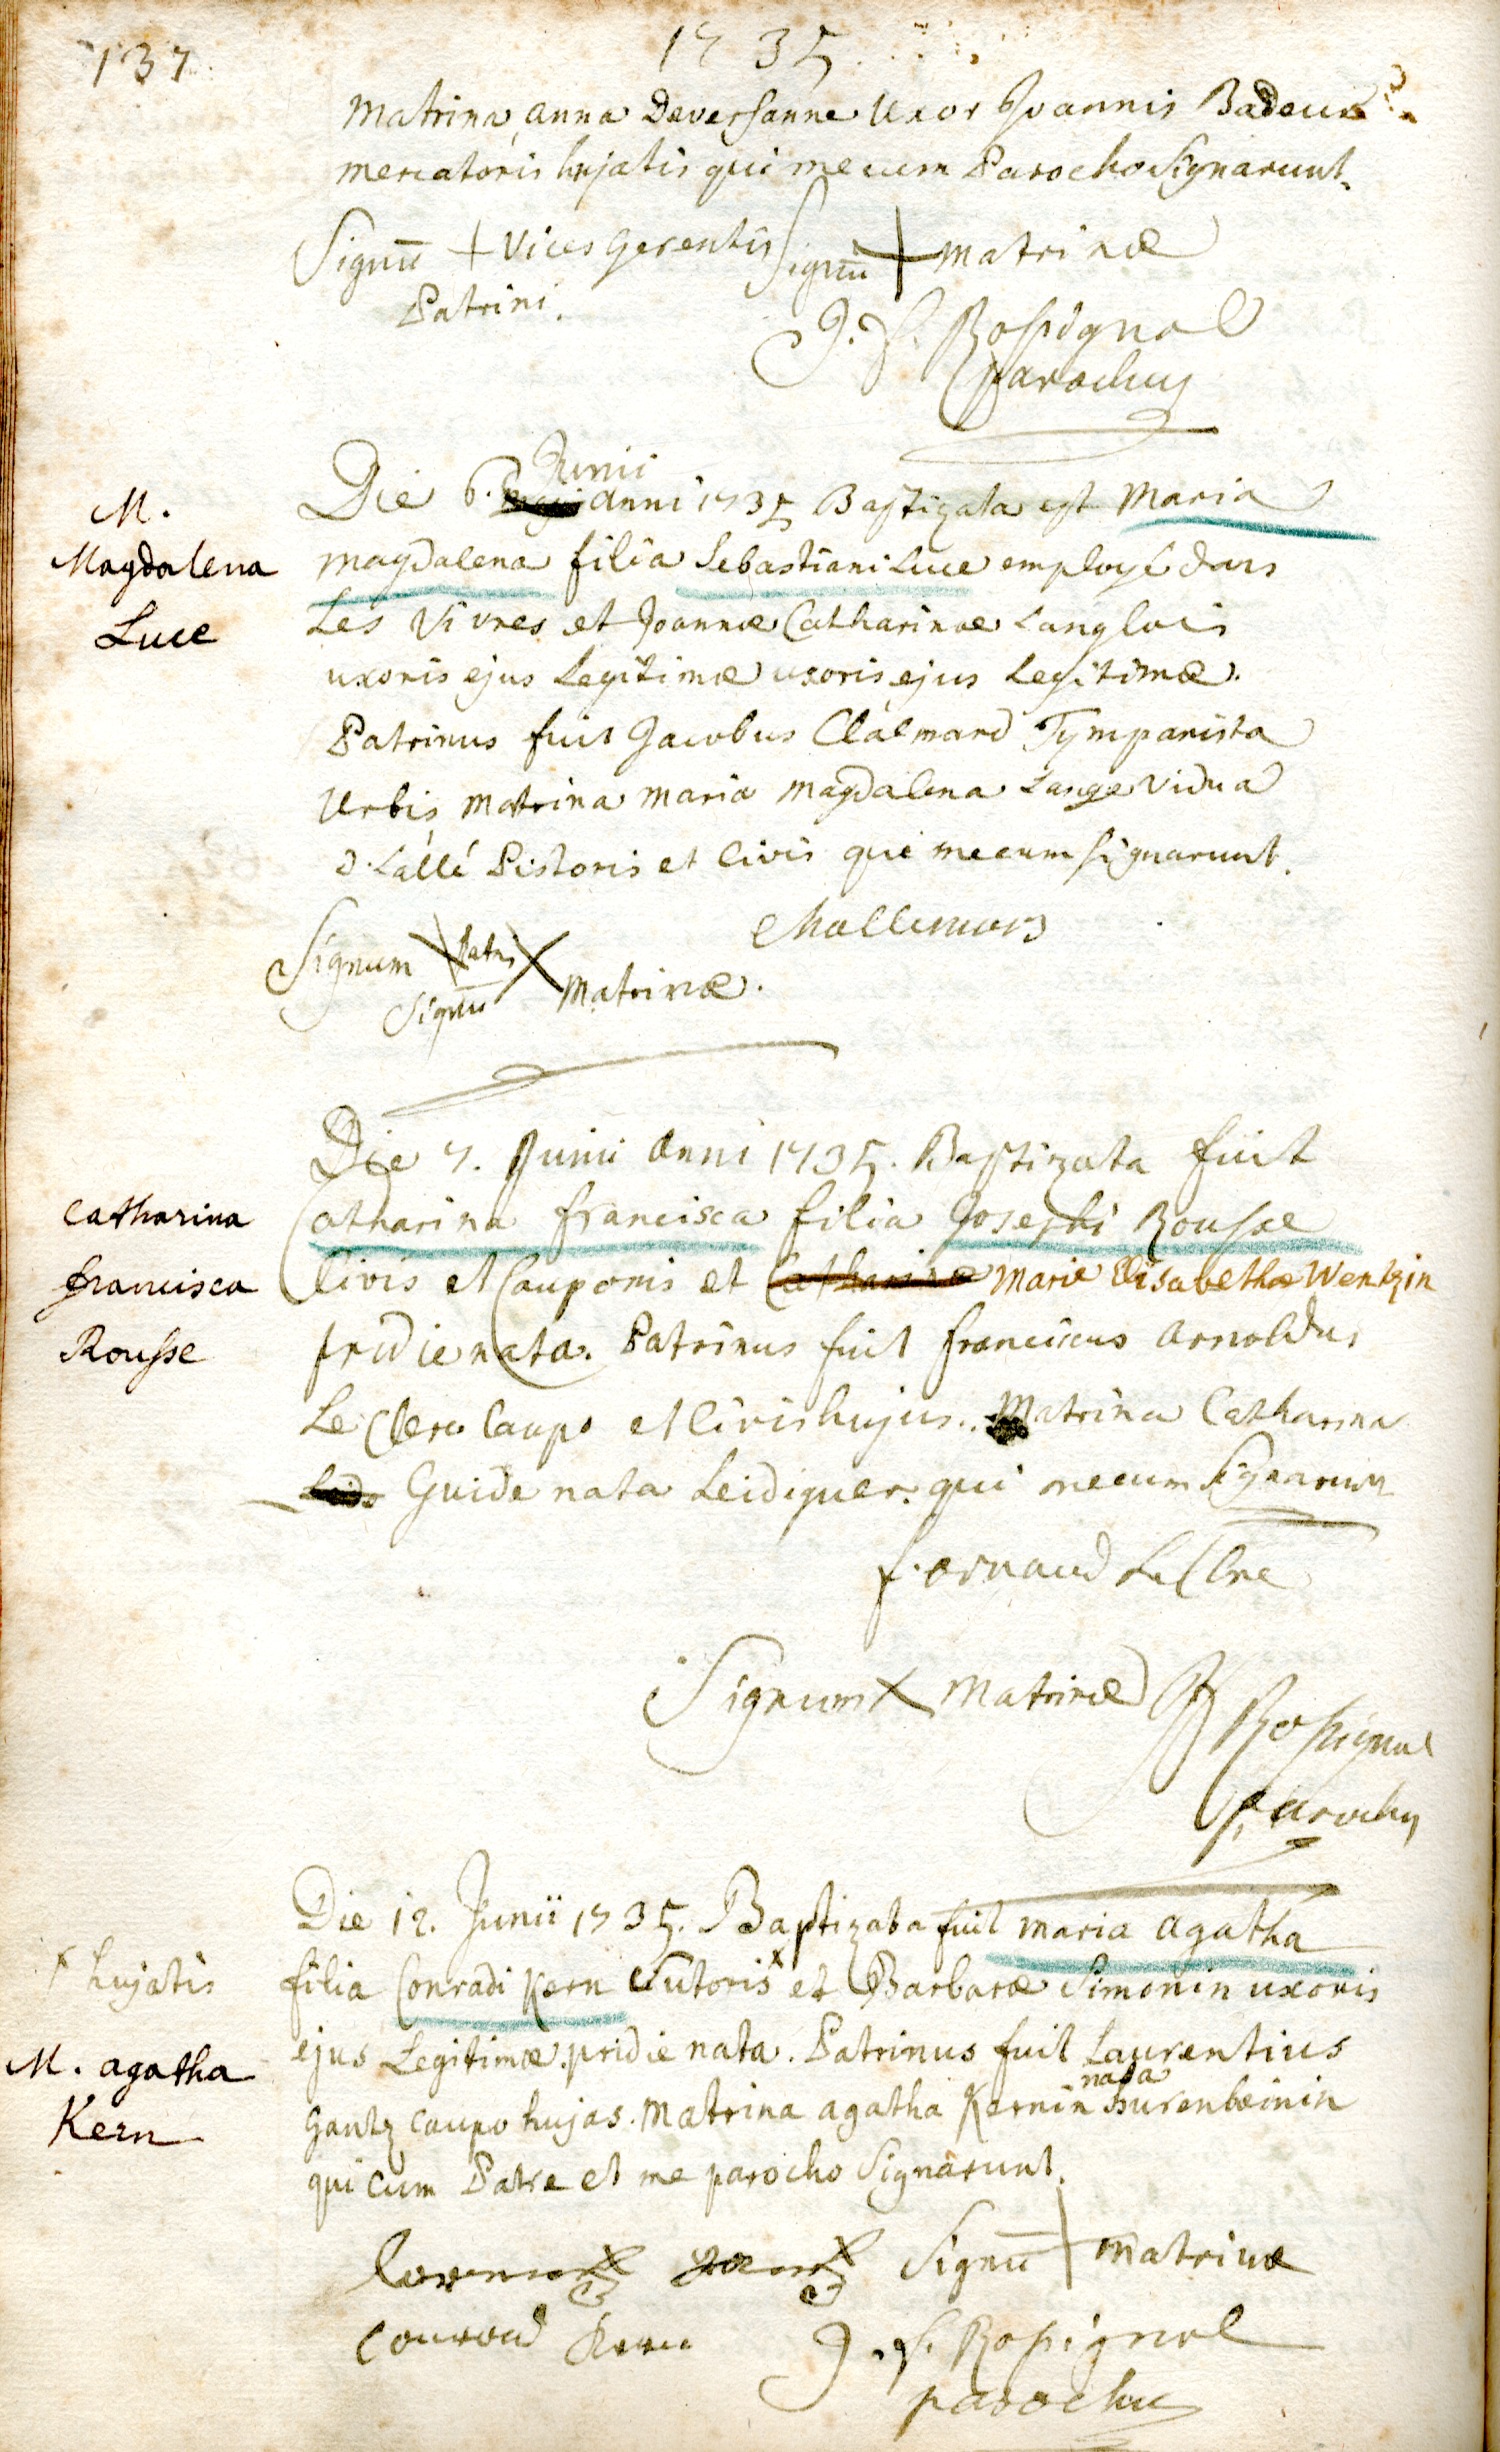 137
1735
Matrina Anna Deversanne Uxor Joannis Badeux
mercatoris hujatis qui mecum Parocho Signarunt.
Signū + Vices Gerentis Signū + Matrinæ
Patrini.
J. F. Rossignol
parochus
Junii
Die 6. anni 1735 Baptizata est Maria
M.
Magdalena
Luce
magdalena filia Sebastiani Luce employé dans
Les Vivres et Joannæ Catharinæ Langlois
uxoris ejus Legitimæ uxoris ejus Legitimæ.
Patrinus fuit Jacobus Clalmard Tympanista
Urbis Matrina Maria Magdalena Lange Vidua
D. Lállé Pistoris et Civis qui mecum Signarunt.
Signum X Patris X
Signū Matrinæ.
Die 7. Junii Anni 1735. Baptizata fuit
Catharina
francisca
Rousse
Catharina francisca filia Josephi Rousse
Civis et Cauponis et Catharinæ Mariæ Elisabethæ Wentzin
pridie nata. Patrinus fuit franciscus Arnoldus
Le Clerc Caupo et Civis hujus. Matrina Catharina
Guide nata Leidiguer. qui mecum Signarunt
f. arnaud
Signum X Matrinæ J F Rossignol
parochus
Die 12. Junii 1735. Baptizata fuit Maria Agatha
x hujatis
filia Conradi Kern Sutoris x et Barbaræ Simonin uxoris
M. agatha
Kern
ejus Legitimæ. pridie nata. Patrinus fuit Laurentius
nata
Gantz caupo hujas. Matrina agatha Kernin hurenbeinin
qui cum Patre et me parocho Signarunt.
Signū + Matrinæ
Conrad Kern J. F. Rossignol
parochus